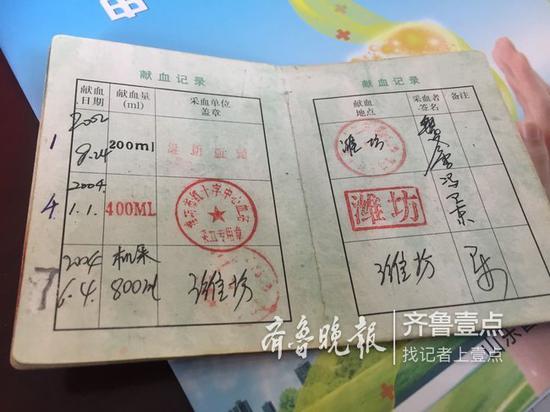 献血记录
献血日期
献血量(ml)
采血单位盖章
1
2002
8.24
200ml
4
2004.
1.1.
400ML
7
2004
6.4.
机采
800ml
潍坊
献血记录
献血地点
采血者签名
备注
潍坊
潍坊
潍坊
齐鲁晚报
齐鲁壹点
找记者上壹点